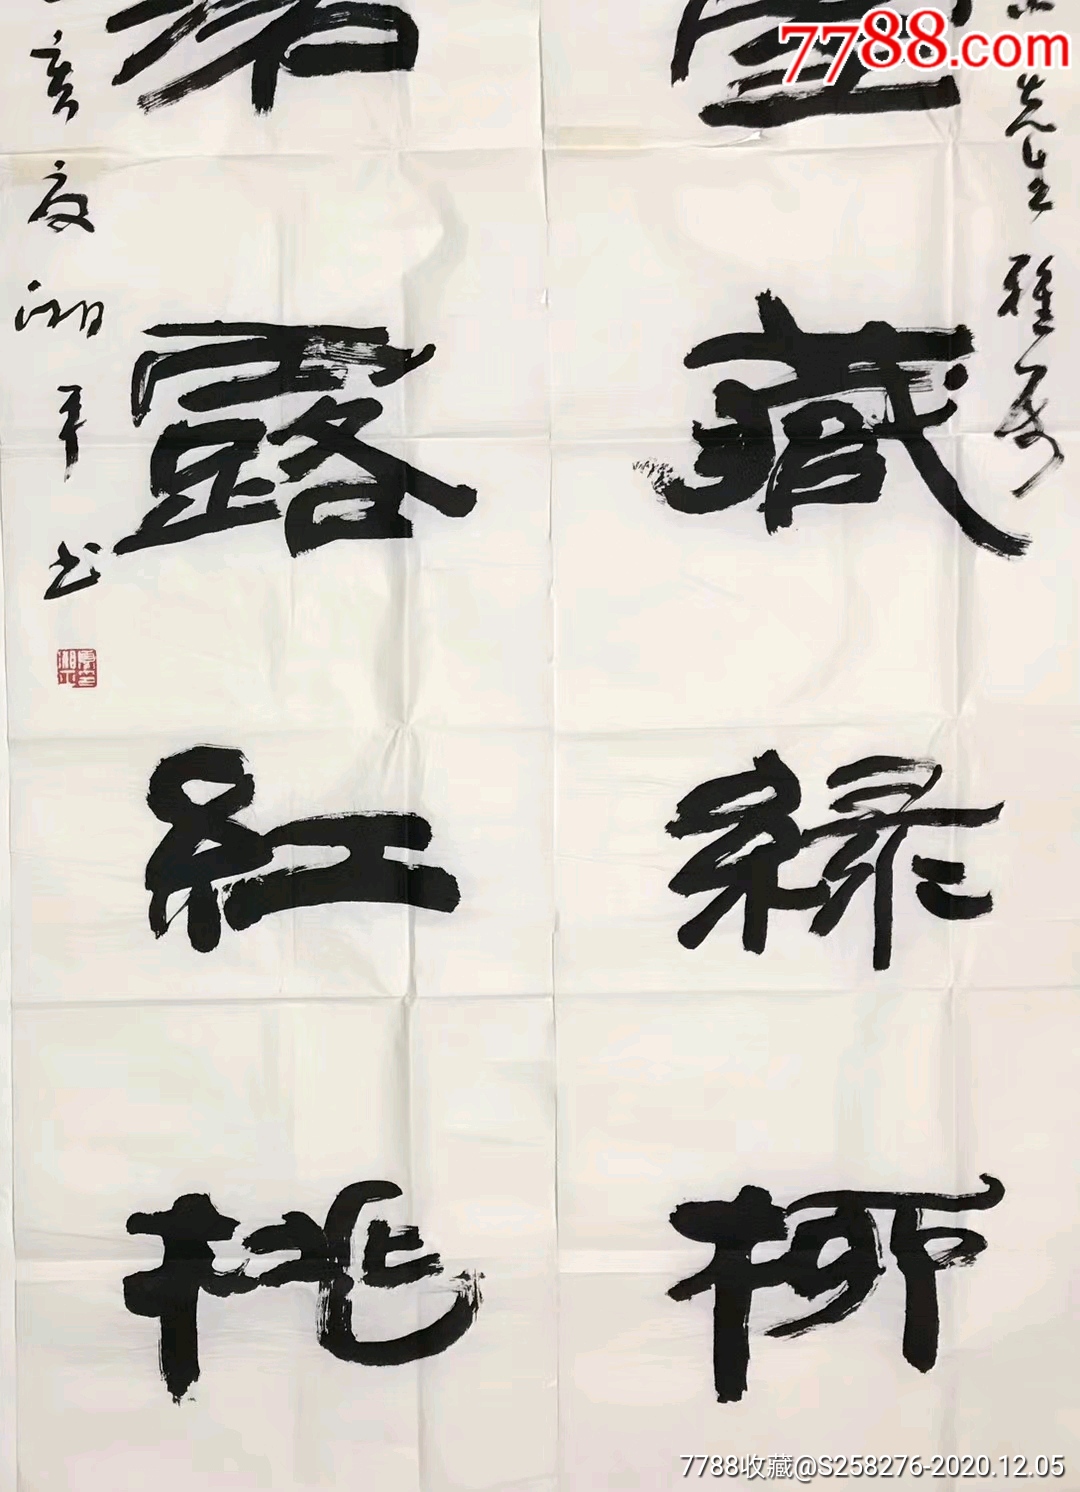 7788.com
先生雅属
藏緑柳
露紅桃
亥夏湘平书
7788收藏@S258276-2020.12.05